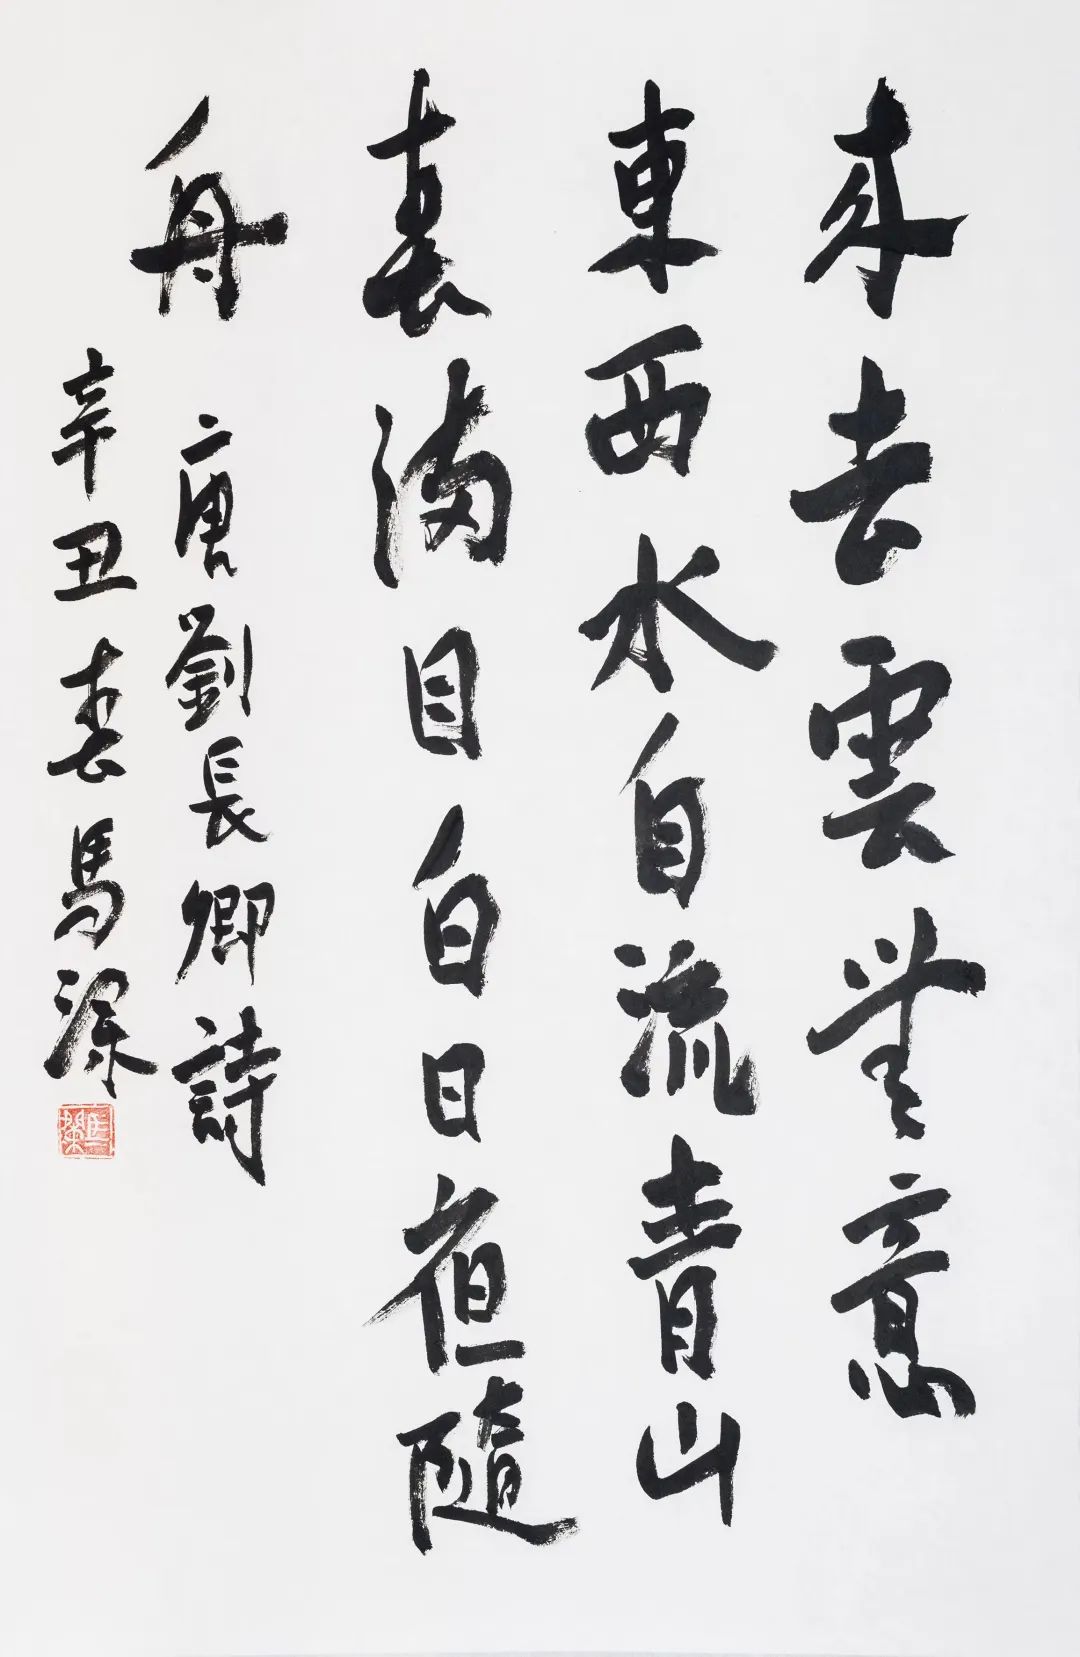 来去雲無意
東西水自流青山
春滿目白日但隨
舟
唐劉長卿詩
辛丑春馬